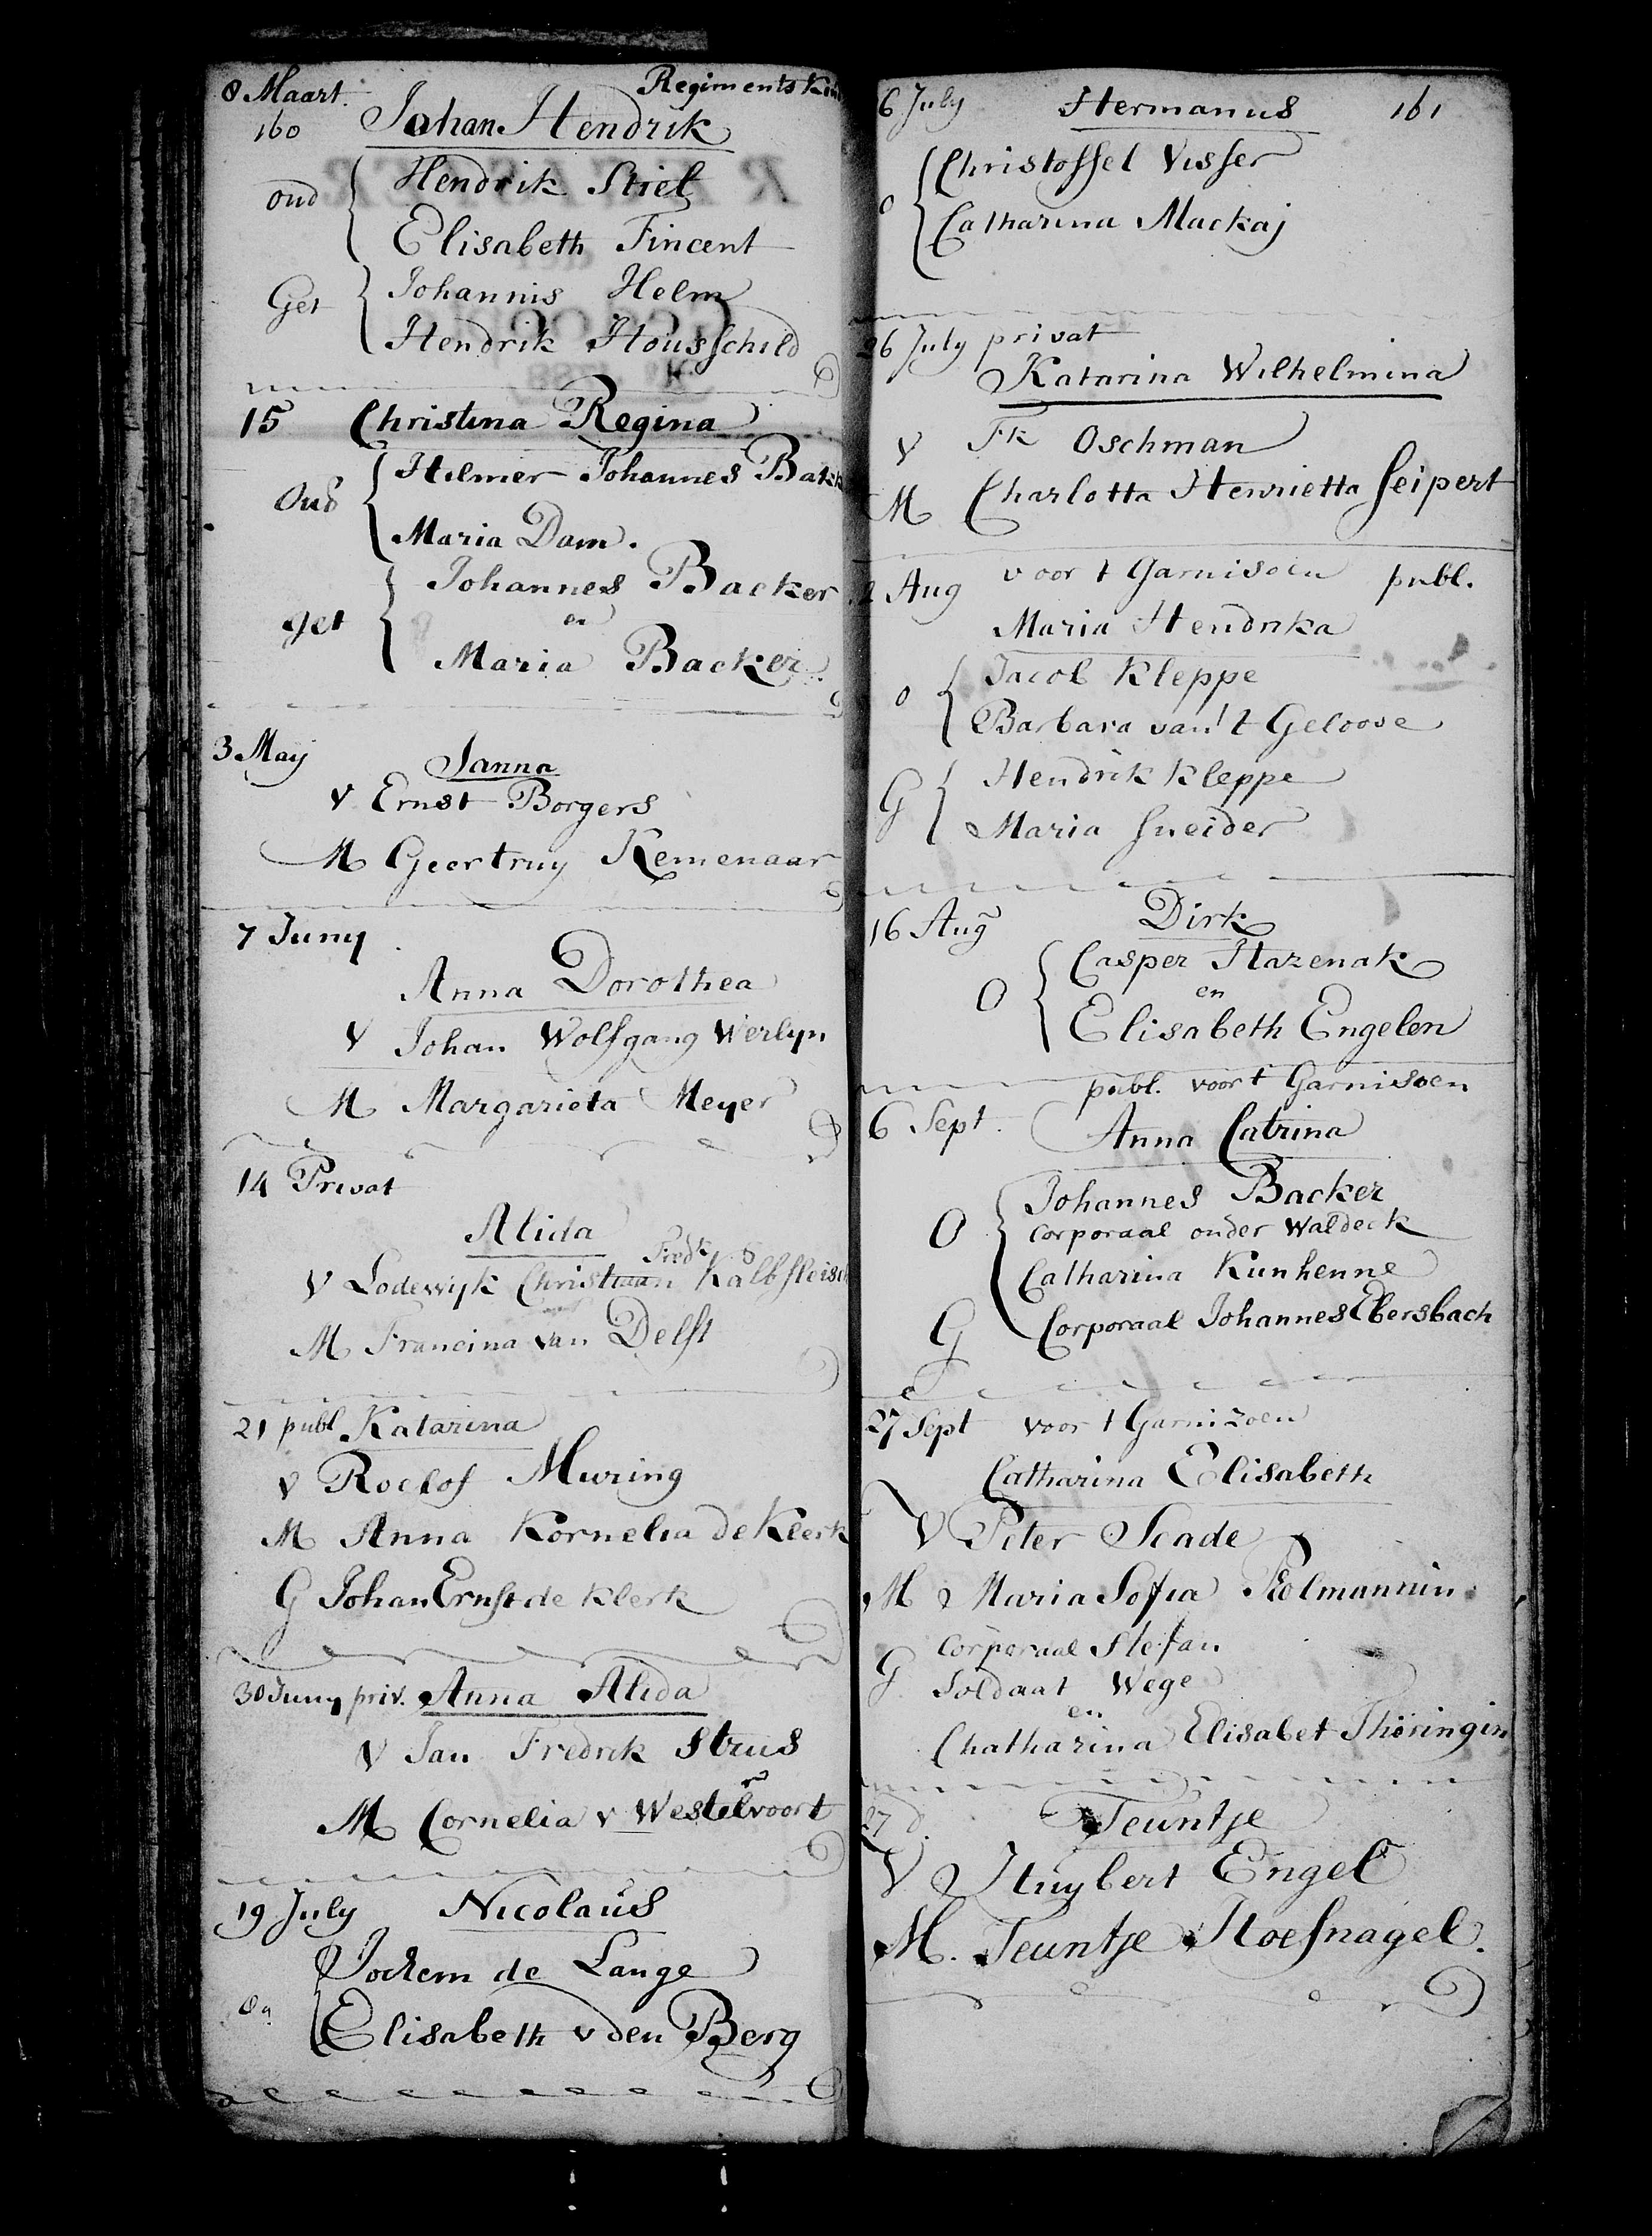 8 Maart. Regiments Kin
160 Johan Hendrik
oud Hendrik Stiel
Elisabeth Fincent
Get Johannis Helm
Hendrik Housschild
15 Christina Regina
Oud Hilmer Johannes Bakk
Maria Dam.
get Johannes Backer
en
Maria Backer
3 May Janna
V Ernst Borgers
M Geertruy Kemenaar
7 Juny
Anna Dorothea
V Johan Wolfgang Werlyn
M Margarieta Meyer
14 Privat
Alida
Fredk
V Lodewyk Christiaan Kalbfleisch
M Francina van Delft
21 publ Katarina
V Roelof Muring
M Anna Kornelia de Klerk
G Johan Ernst de Klerk
30 Juny priv. Anna Alida
V Jan Fredrik Strus
M Cornelia v Westelvoort
19 July Nicolaus
Jochem de Lange
Elisabeth v den Berg
6 July Hermanus 161
O Christoffel Visser
Catharina Mackaj
26 July privat
Katarina Wilhelmina
V Fk Oschman
M Charlotta Henrietta Seipert
2 Aug voor t Garnisoen publ.
Maria Hendrika
O Jacob Kleppe
Barbara van 't Geloove
G Hendrik Kleppe
Maria Sneider
16 Aug Dirk
O Casper Hazenak
en
Elisabeth Engelen
publ. voor t Garnisoen
6 Sept. Anna Catrina
O Johannes Backer
Corporaal onder Waldeck
Catharina Kunhenne
G Corporaal Johannes Ebersbach
27 Sept voor t Garnizoen
Catharina Elisabeth
V Peter Scade
M Maria Sofia Rolmannin
Corporaal Stefan
G Soldaat Wege
en
Chatharina Elisabet Thöringin
27 d. Teuntje
V Huybert Engel
M. Teuntje Hoefnagel.